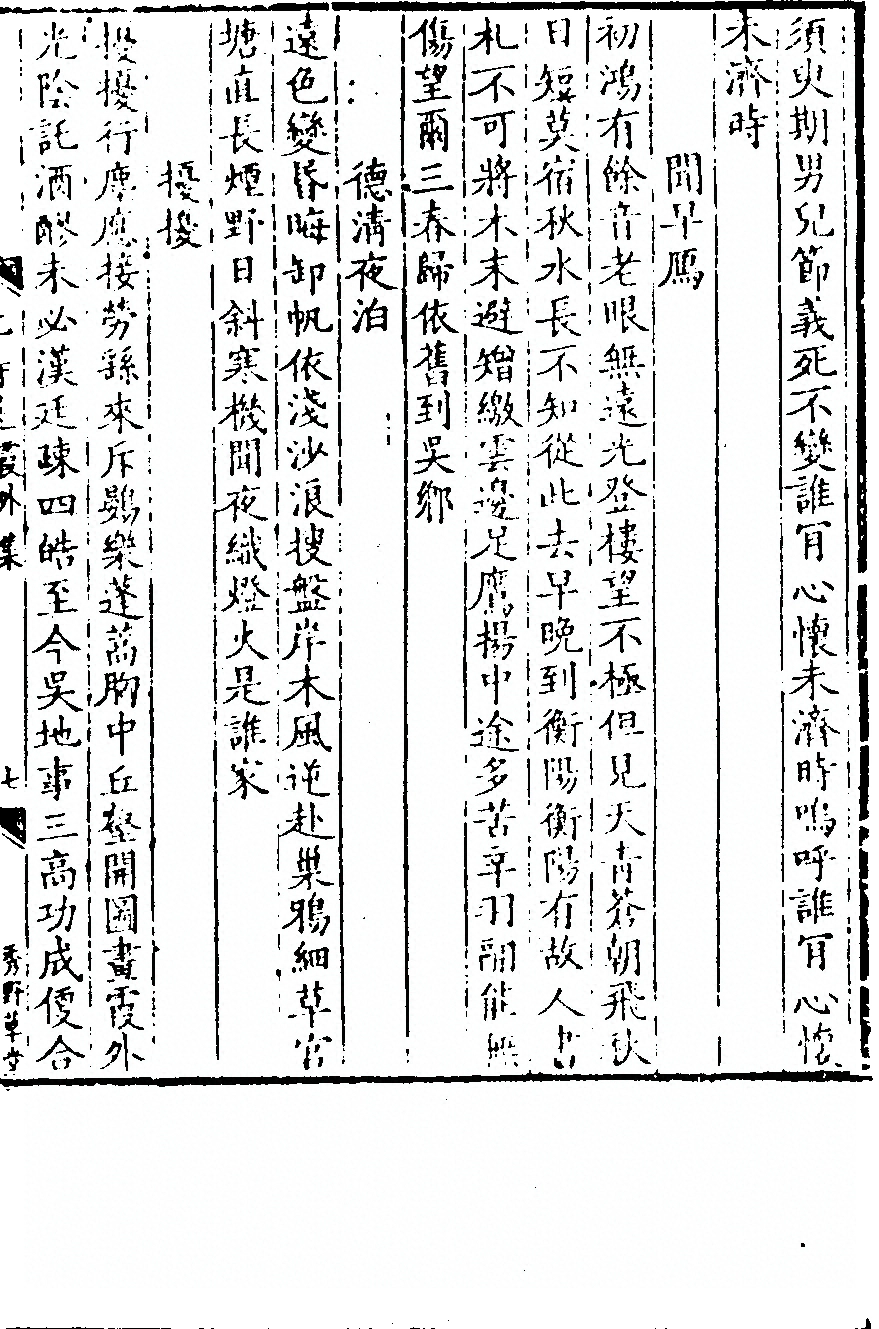 須臾期男兒節義死不變誰肎心懷未濟時嗚呼誰肎心懷
未濟時
聞早鴈
初鴻有餘音老眼無遠光登樓望不極但見天青蒼朝飛秋
日短莫宿秋水長不知從此去早晚到衡陽衡陽有故人書
札不可將木末避矰繳雲邊足鷹揚中途多苦辛羽翮能無
傷望爾三春歸依舊到吳鄉
德清夜泊
遠色變昏晦卸帆依淺沙浪搜盤岸木風逆赴巢鴉細草官
塘直長煙野日斜寒機聞夜織燈火是誰家
擾擾
擾擾行塵應接勞猻來斥鷃樂蓬蒿胸中丘壑開圖畫霞外
光陰託酒醪未必漢廷疎四皓至今吳地事三高功成便合
霞外集
七
秀野草堂